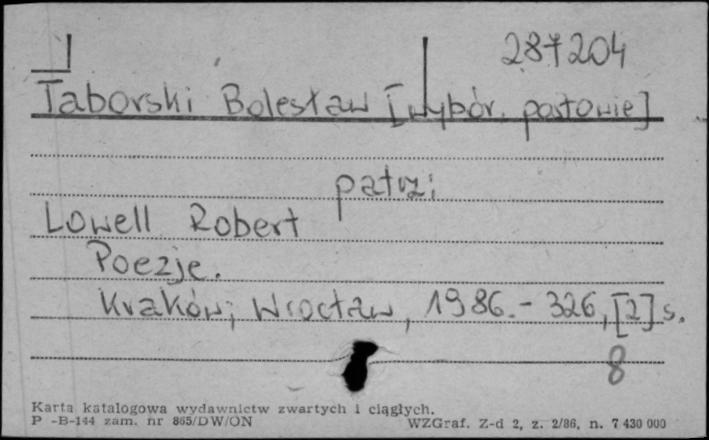 287204
Taborski Bolesław [wybór. posłowie]
patrz:
Lowell Robert
Poezje.
Kraków; Wrocław, 1986. - 326, [2] s.
8
Karta katalogowa wydawnictw zwartych i ciągłych.
P -B-144 zam. nr 865/DW/ON WZGraf. Z-d 2, z. 2/86, n. 7 430 000